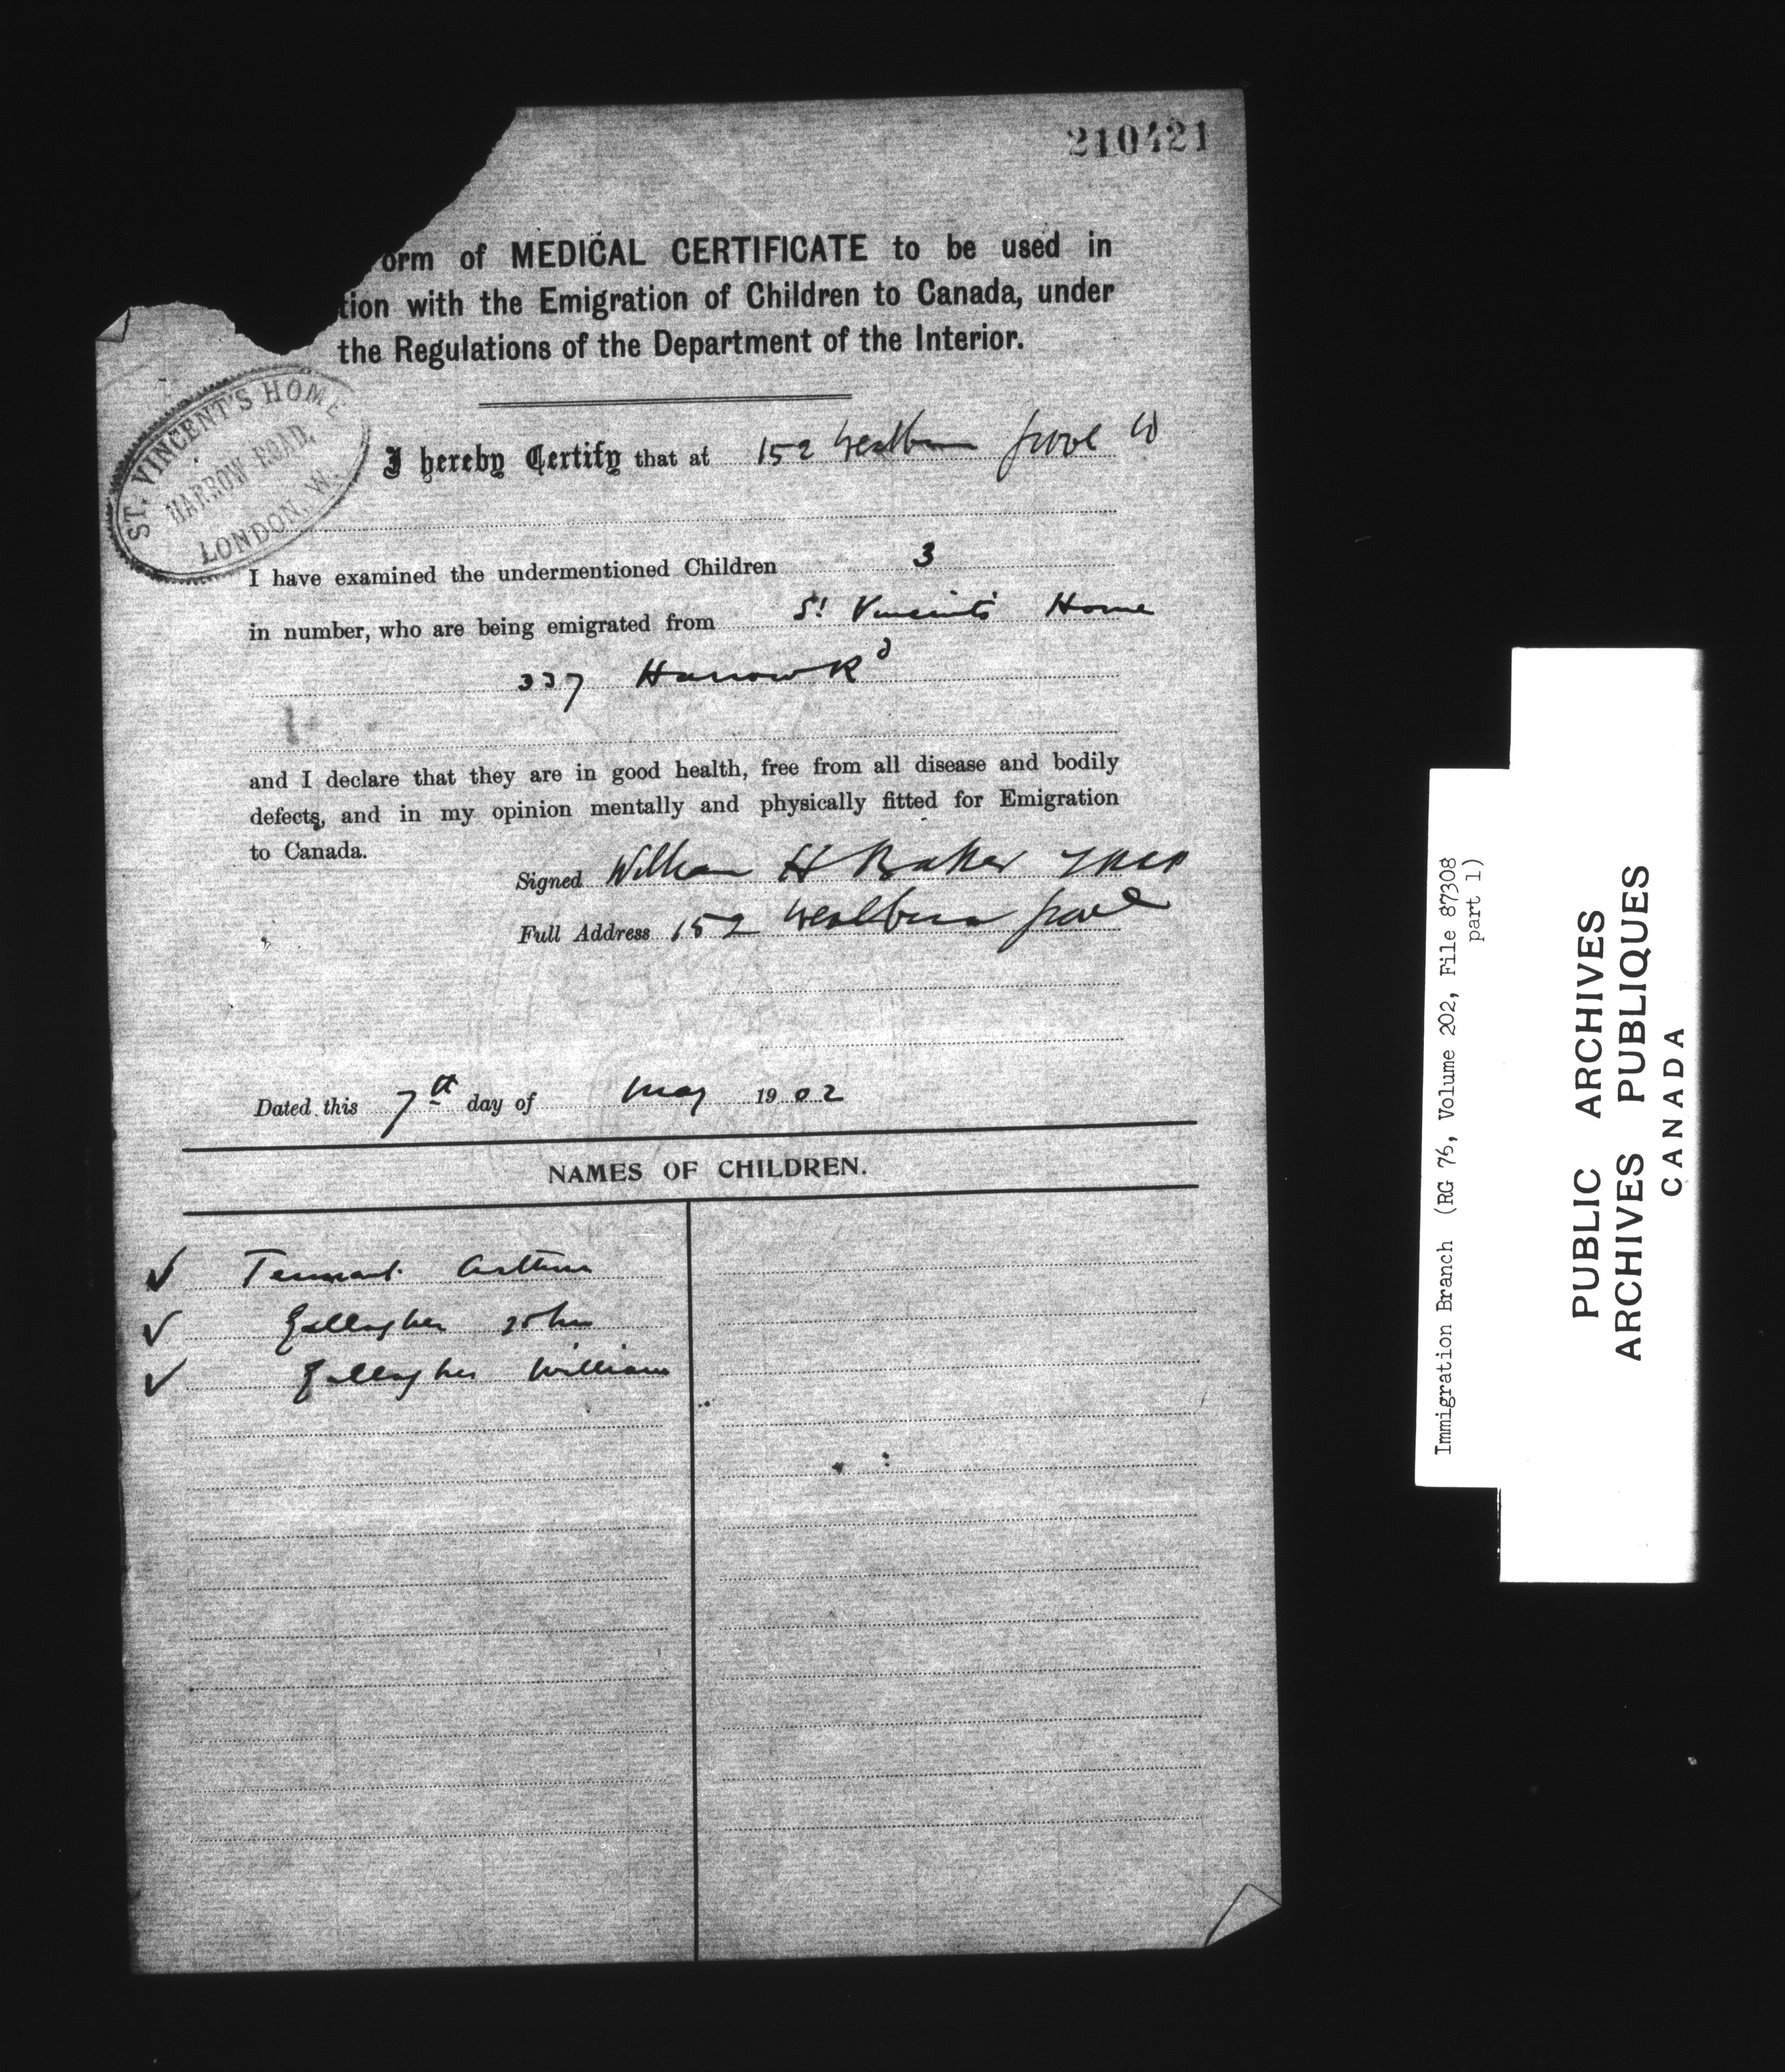 210421
orm of MEDICAL CERTIFICATE to be used in
tion with the Emigration of Children to Canada, under
the Regulations of the Department of the Interior.
ST. VINCENT'S HOME
HARROW ROAD,
LONDON, W.
I hereby Certify that at 152 Westbourne Grove W
I have examined the undermentioned Children 3
in number, who are being emigrated from St Vincent's Home
337 Harrow Rd
and I declare that they are in good health, free from all disease and bodily
defects, and in my opinion mentally and physically fitted for Emigration
to Canada.
Signed William H Baker
Full Address 152 Westbourne Grove
Dated this 7th day of May 1902
NAMES OF CHILDREN.
✓ Tennant Arthur
✓ Gallagher John
✓ Gallagher William
Immigration Branch (RG 76, Volume 202, File 87308
part 1)
PUBLIC ARCHIVES
ARCHIVES PUBLIQUES
CANADA